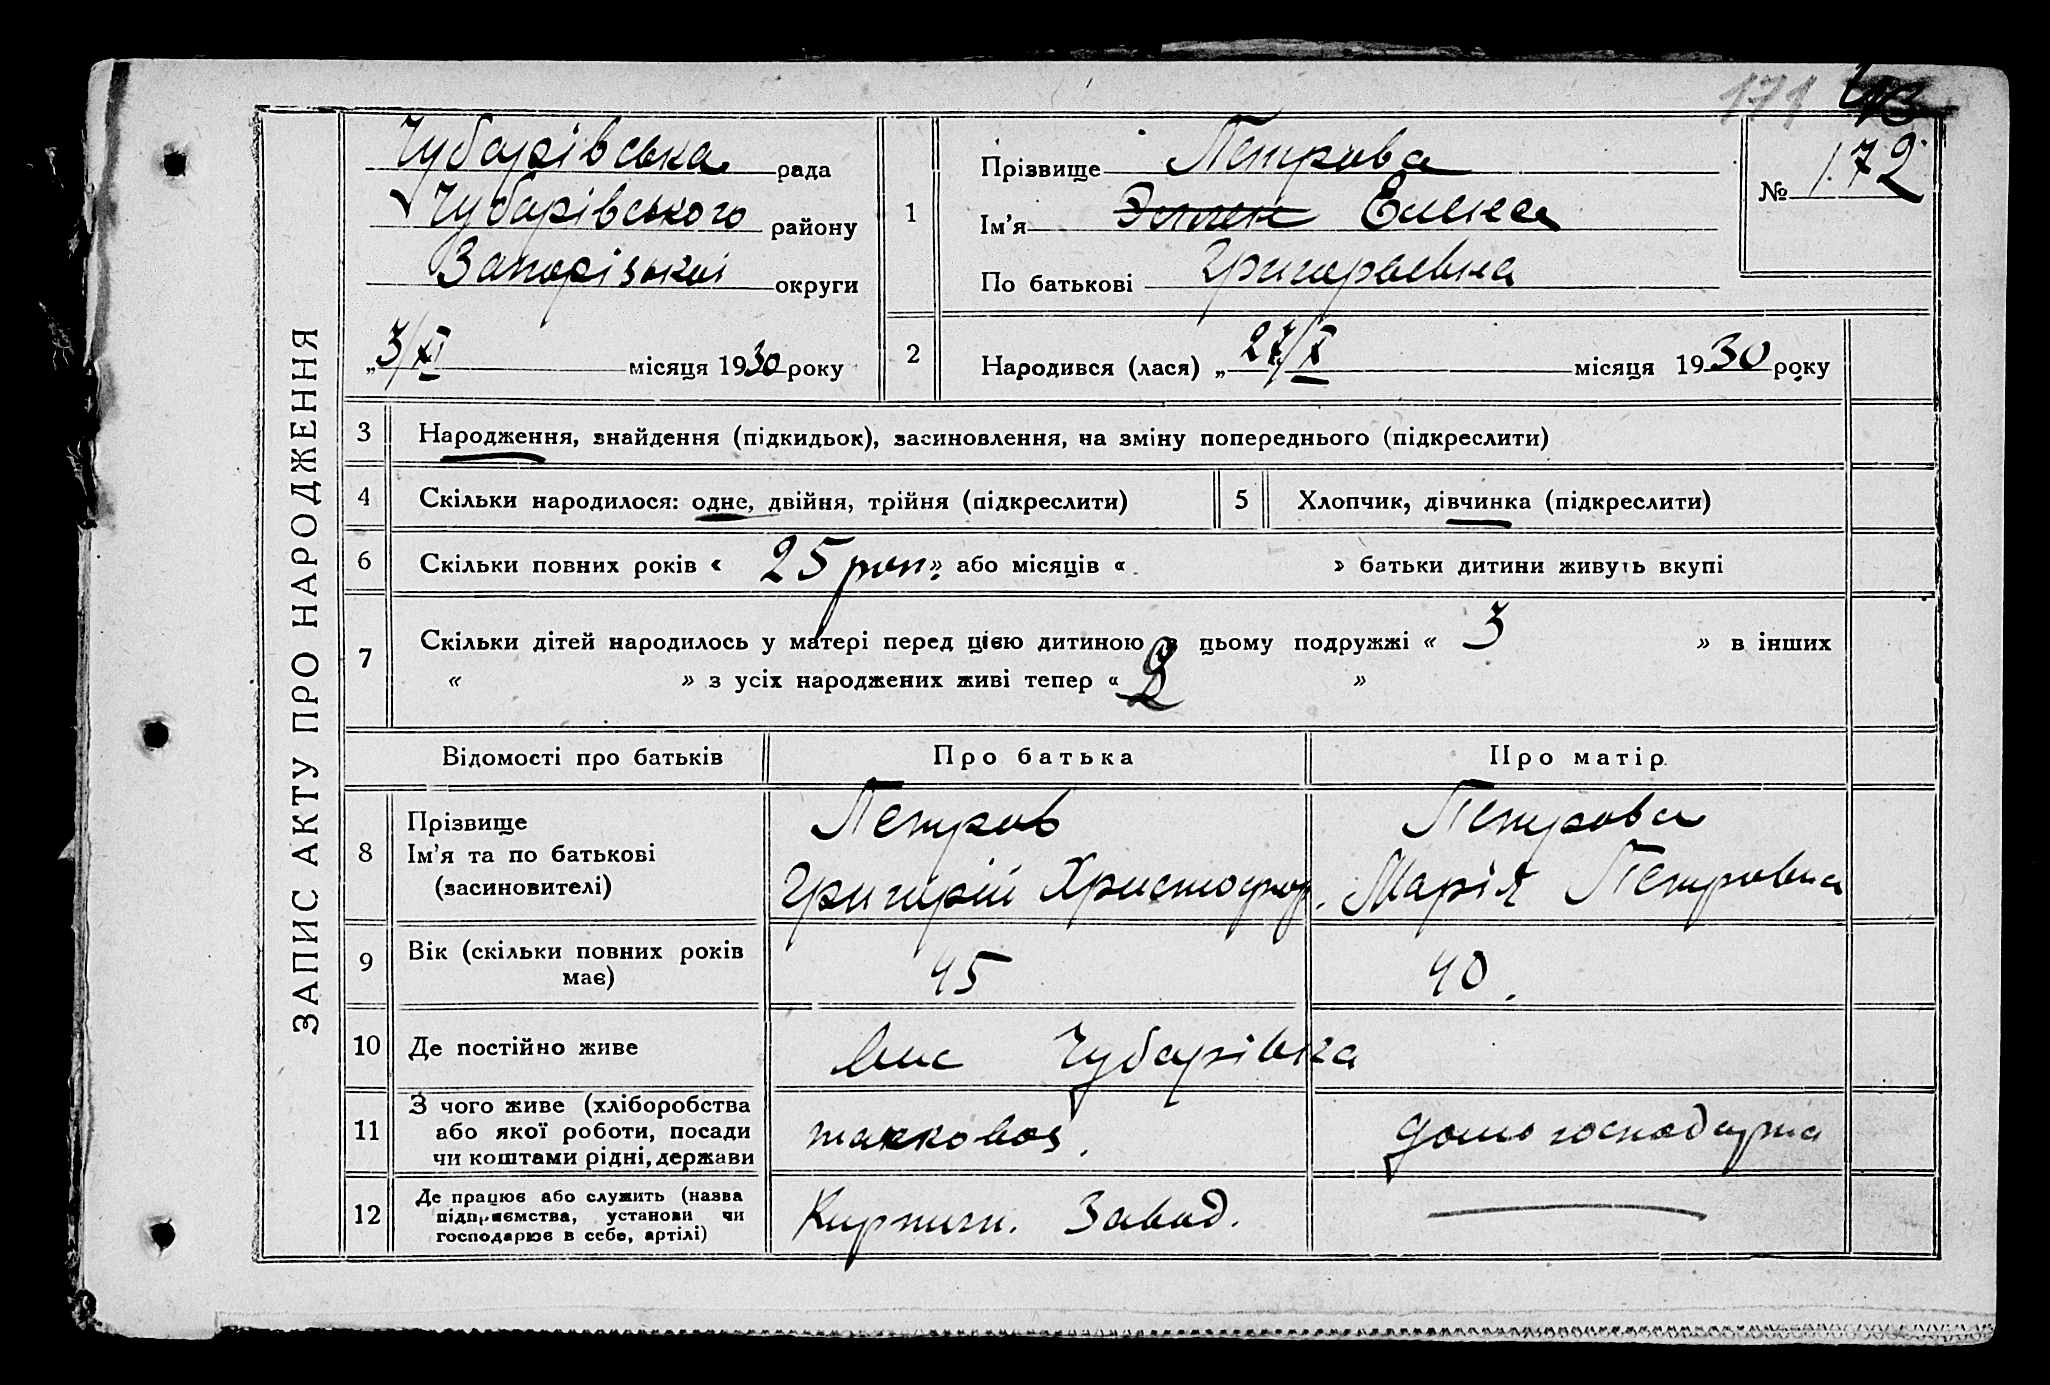 171
ЗАПИС АКТУ ПРО НАРОДЖЕННЯ
Чубарівська рада
Чубарівського району
Запорізької округи
„3/XI місяця 1930 року
1
Прізвище Петрова
Ім'я Елена
По батькові Григорьевна
№ 172
2
Народився (лася) „27/X місяця 1930 року
3 Народження, знайдення (підкидьок), засиновлення, на зміну попереднього (підкреслити)
4 Скільки народилося: одне, двійня, трійня (підкреслити)
5 Хлопчик, дівчинка (підкреслити)
6 Скільки повних років « 25 рок » або місяців « » батьки дитини живуть вкупі
7 Скільки дітей народилось у матері перед цією дитиною в цьому подружжі « 3 » в інших
« » з усіх народжених живі тепер « 2 »
Відомості про батьків Про батька Про матір
8 Прізвище Петров Петрова
Ім'я та по батькові Григорій Христофор. Марія Петровна
(засиновителі)
9 Вік (скільки повних років 45 40
має)
10 Де постійно живе Чубарівка
11 З чого живе (хліборобства
або якої роботи, посади домогосподарка
чи коштами рідні, держави
12 Де працює або служить (назва
підприємства, установи чи Кирпичн. Завод.
господарює в себе, артілі)